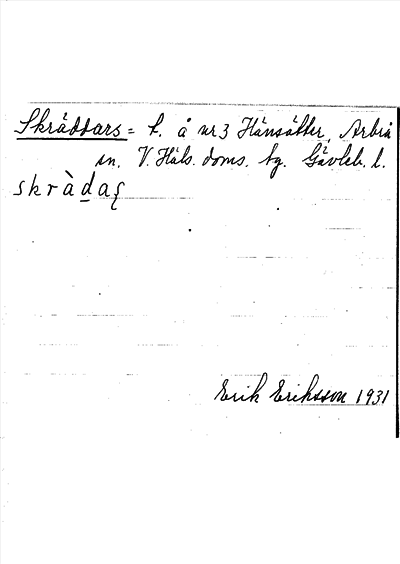 Skräddars = t. å nr 3 Hänsätter, Arbrå
sn. V. Häls. doms. hg. Gävleb. l.
skràdaʂ
Erik Eriksson 1931